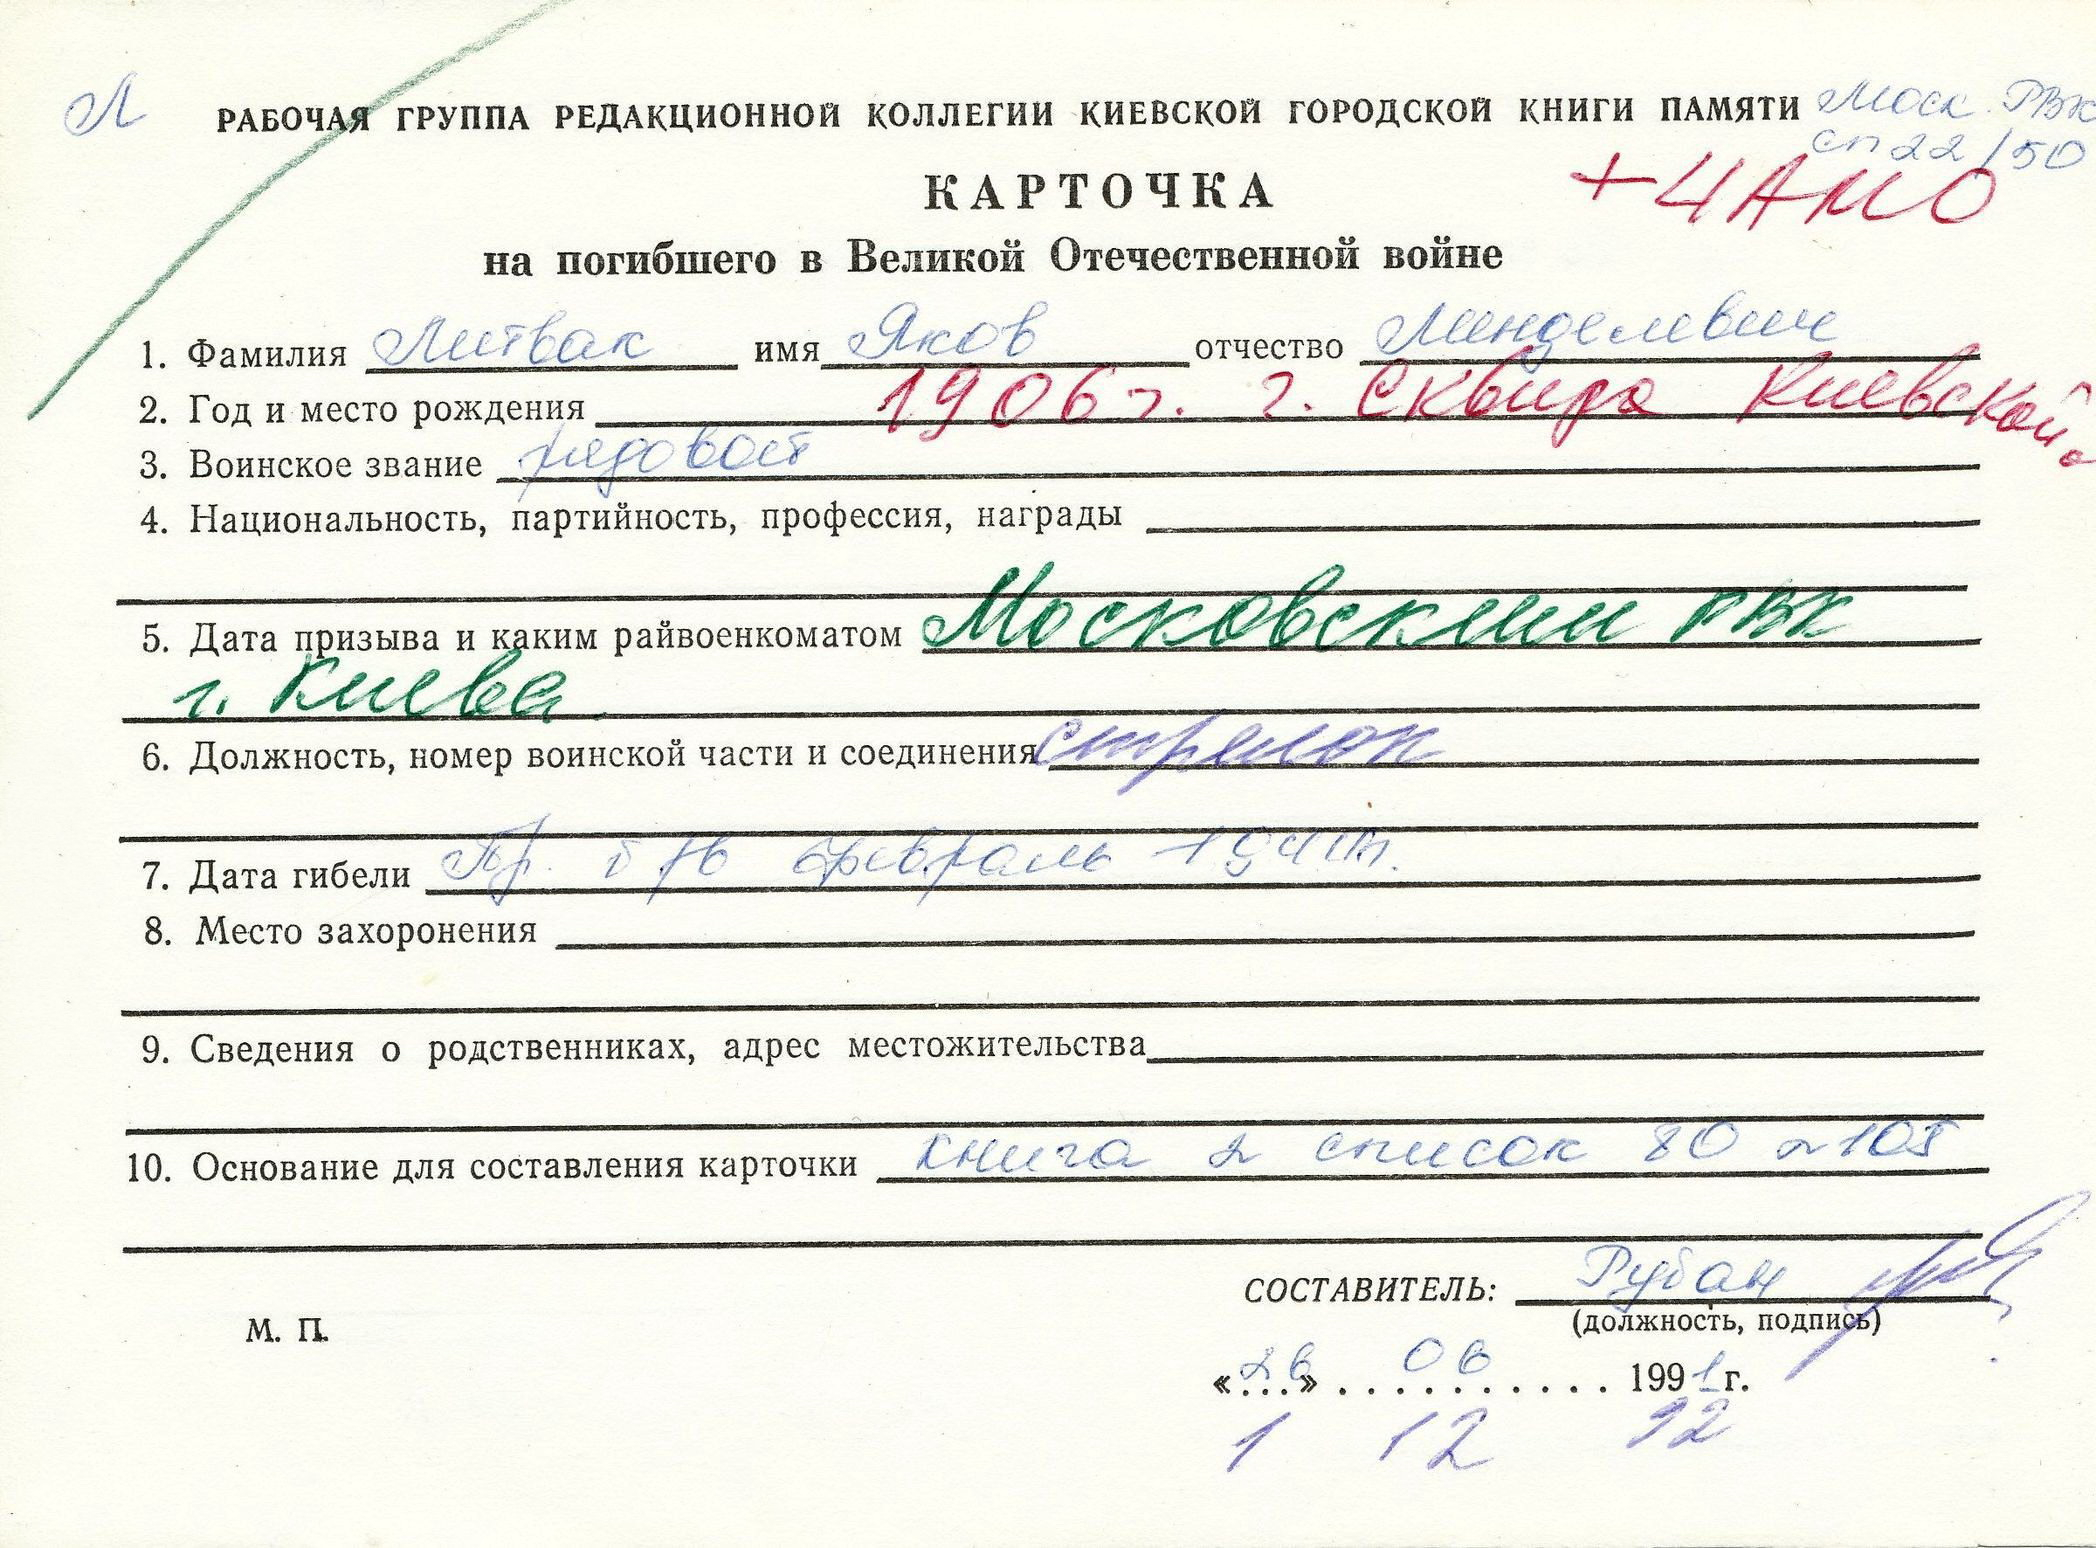 Л РАБОЧАЯ ГРУППА РЕДАКЦИОННОЙ КОЛЛЕГИИ КИЕВСКОЙ ГОРОДСКОЙ КНИГИ ПАМЯТИ Моск. РВК
сп 22/50
КАРТОЧКА + ЦАМО
на погибшего в Великой Отечественной войне
1. Фамилия Литвак имя Яков отчество Менделевич
2. Год и место рождения 1906 г. г. Сквира Киевской о
3. Воинское звание рядовой
4. Национальность, партийность, профессия, награды
5. Дата призыва и каким райвоенкоматом Московским РВК
г. Киева.
6. Должность, номер воинской части и соединения стрелок
7. Дата гибели Пр. б/в февраль 1944г.
8. Место захоронения
9. Сведения о родственниках, адрес местожительства
10. Основание для составления карточки книга 2 список 80
СОСТАВИТЕЛЬ: Рубан
(должность, подпись)
М. П.
«26» 06 1991 г.
1 12 92